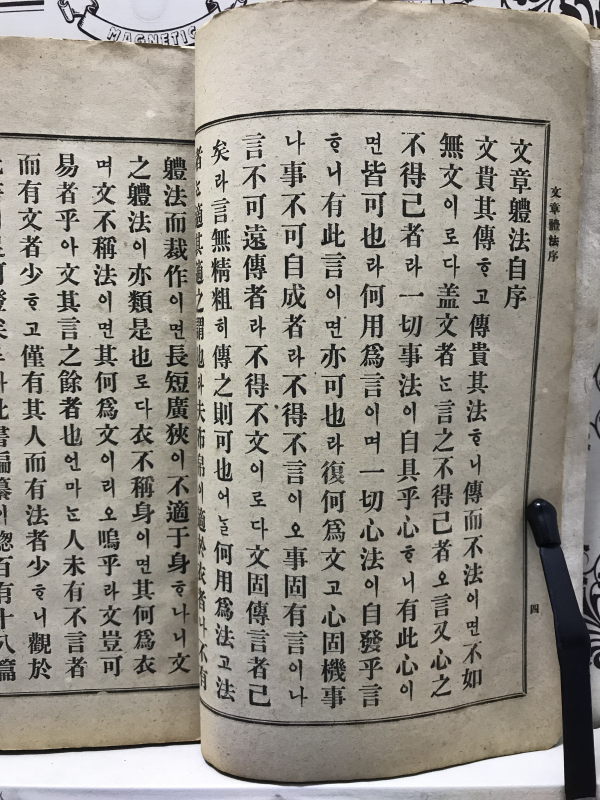 MAGNETIC
文章體法序
四
文章軆法自序
文貴其傳ᄒᆞ고傳貴其法ᄒᆞ니傳而不法이면不如
無文이로다盖文者ᄂᆞᆫ言之不得己者오言又心之
不得己者라一切事法이自具乎心ᄒᆞ니有此心이
면皆可也라何用爲言이며一切心法이自發乎言
ᄒᆞ니有此言이면亦可也라復何爲文고心固機事
나事不可自成者라不得不言이오事固有言이나
言不可遠傳者라不得不文이로다文固傳言者己
矣라言無精粗히傳之則可也어ᄂᆞᆯ何用爲法고法
者ᄂᆞᆫ適其適之謂也라夫布帛이適於衣者나不有
軆法而裁作이면長短廣狹이不適于身ᄒᆞ나니文
之軆法이亦類是也로다衣不稱身이면其何爲衣
며文不稱法이면其何爲文이리오嗚乎라文豈可
易者乎아文其言之餘者也언마ᄂᆞᆫ人未有不言者
而有文者少ᄒᆞ고僅有其人而有法者少ᄒᆞ니觀於
此書編纂이總百有十八篇